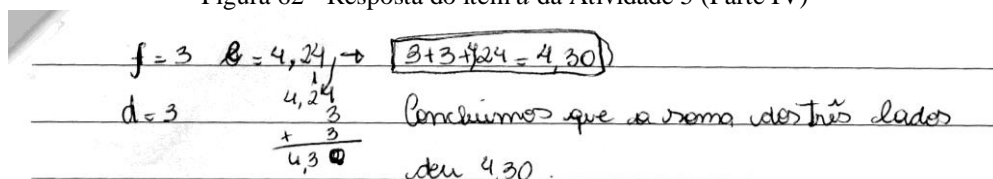 Figura 62 - Resposta do item a da Atividade 3 (Parte IV)
f = 3 e = 4,24 → 3+3+4,24 = 4,30
d = 3
4,24
3
+ 3
4,30
Concluimos que a soma dos três lados
deu 4,30.